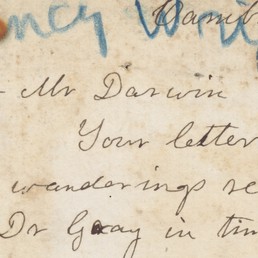 ncy Wri
Camb
Mr Darwin
Your letter
wanderings re
Dr Gray in tim